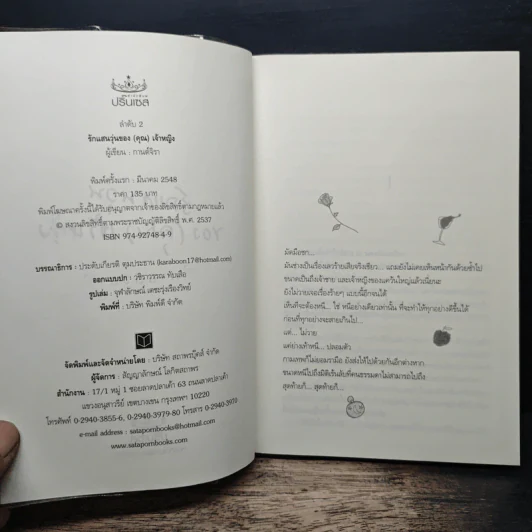 สำนักพิมพ์
ปริ๊นเซส
ลำดับ 2
รักแสนวุ่นของ (คุณ) เจ้าหญิง
ผู้เขียน : กานต์จิรา
พิมพ์ครั้งแรก : มีนาคม 2548
ราคา 135 บาท
พิมพ์โฆษณาครั้งนี้ได้รับอนุญาตจากเจ้าของลิขสิทธิ์ตามกฎหมายแล้ว
© สงวนลิขสิทธิ์ตามพระราชบัญญัติลิขสิทธิ์ พ.ศ. 2537
ISBN 974-92748-4-9
บรรณาธิการ : ประดับเกียรติ ตุมประธาน (karaboon17@hotmail.com)
ออกแบบปก : วชิราวรรณ ทับเสือ
รูปเล่ม : จุฬาลักษณ์ เดชะรุ่งเรืองวิทย์
พิมพ์ที่ : บริษัท พิมพ์ดี จำกัด
จัดพิมพ์และจัดจำหน่ายโดย : บริษัท สถาพรบุ๊คส์ จำกัด
ผู้จัดการ : สัญญาลักษณ์ โลกิตสถาพร
สำนักงาน : 17/1 หมู่ 1 ซอยลาดปลาเค้า 63 ถนนลาดปลาเค้า
แขวงอนุสาวรีย์ เขตบางเขน กรุงเทพฯ 10220
โทรศัพท์ 0-2940-3855-6, 0-2940-3979-80 โทรสาร 0-2940-3970
e-mail address : satapornbooks@hotmail.com
www.satapornbooks.com
มัดมือชก...
มันช่างเป็นเรื่องเลวร้ายเสียจริงเชียว... แถมยังไม่เคยเห็นหน้ากันด้วยซ้ำไป
ขนาดเป็นถึงเจ้าชาย และเจ้าหญิงของแคว้นใหญ่แล้วเนี่ยนะ
ยังไม่วายเจอเรื่องร้ายๆ แบบนี้อีกจนได้
เห็นทีจะต้องหนี... ใช่ หนีอย่างเดียวเท่านั้น ที่จะทำให้ทุกอย่างดีขึ้นได้
ก่อนที่ทุกอย่างจะสายเกินไป...
แต่... ไม่วาย
แต่ย่างเท้าหนี... ปลอมตัว
กามเทพก็ไม่ยอมรามือ ยังส่งให้ไปด้วยกันอีกต่างหาก
ขนาดหนีไปถึงมิติเร้นลับที่คนธรรมดาไม่สามารถไปถึง
สุดท้ายก็... สุดท้ายก็...